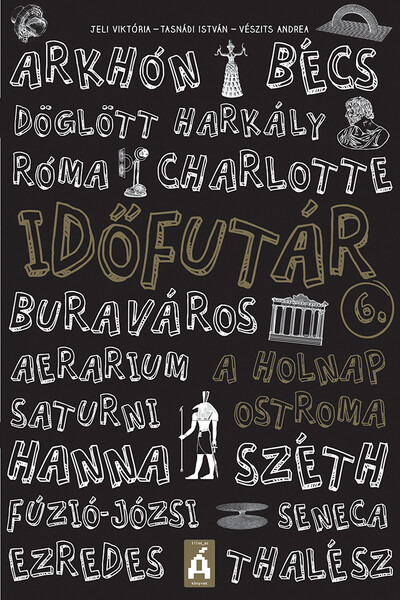 JELI VIKTÓRIA – TASNÁDI ISTVÁN – VÉSZITS ANDREA
ARKHÓN BÉCS
DÖGLÖTT HARKÁLY
RÓMA CHARLOTTE
IDŐFUTÁR
BURAVÁROS 6.
AERARIUM A HOLNAP
SATURNI OSTROMA
HANNA SZÉTH
FÚZIÓ-JÓZSI SENECA
EZREDES THALÉSZ
Á
könyvek